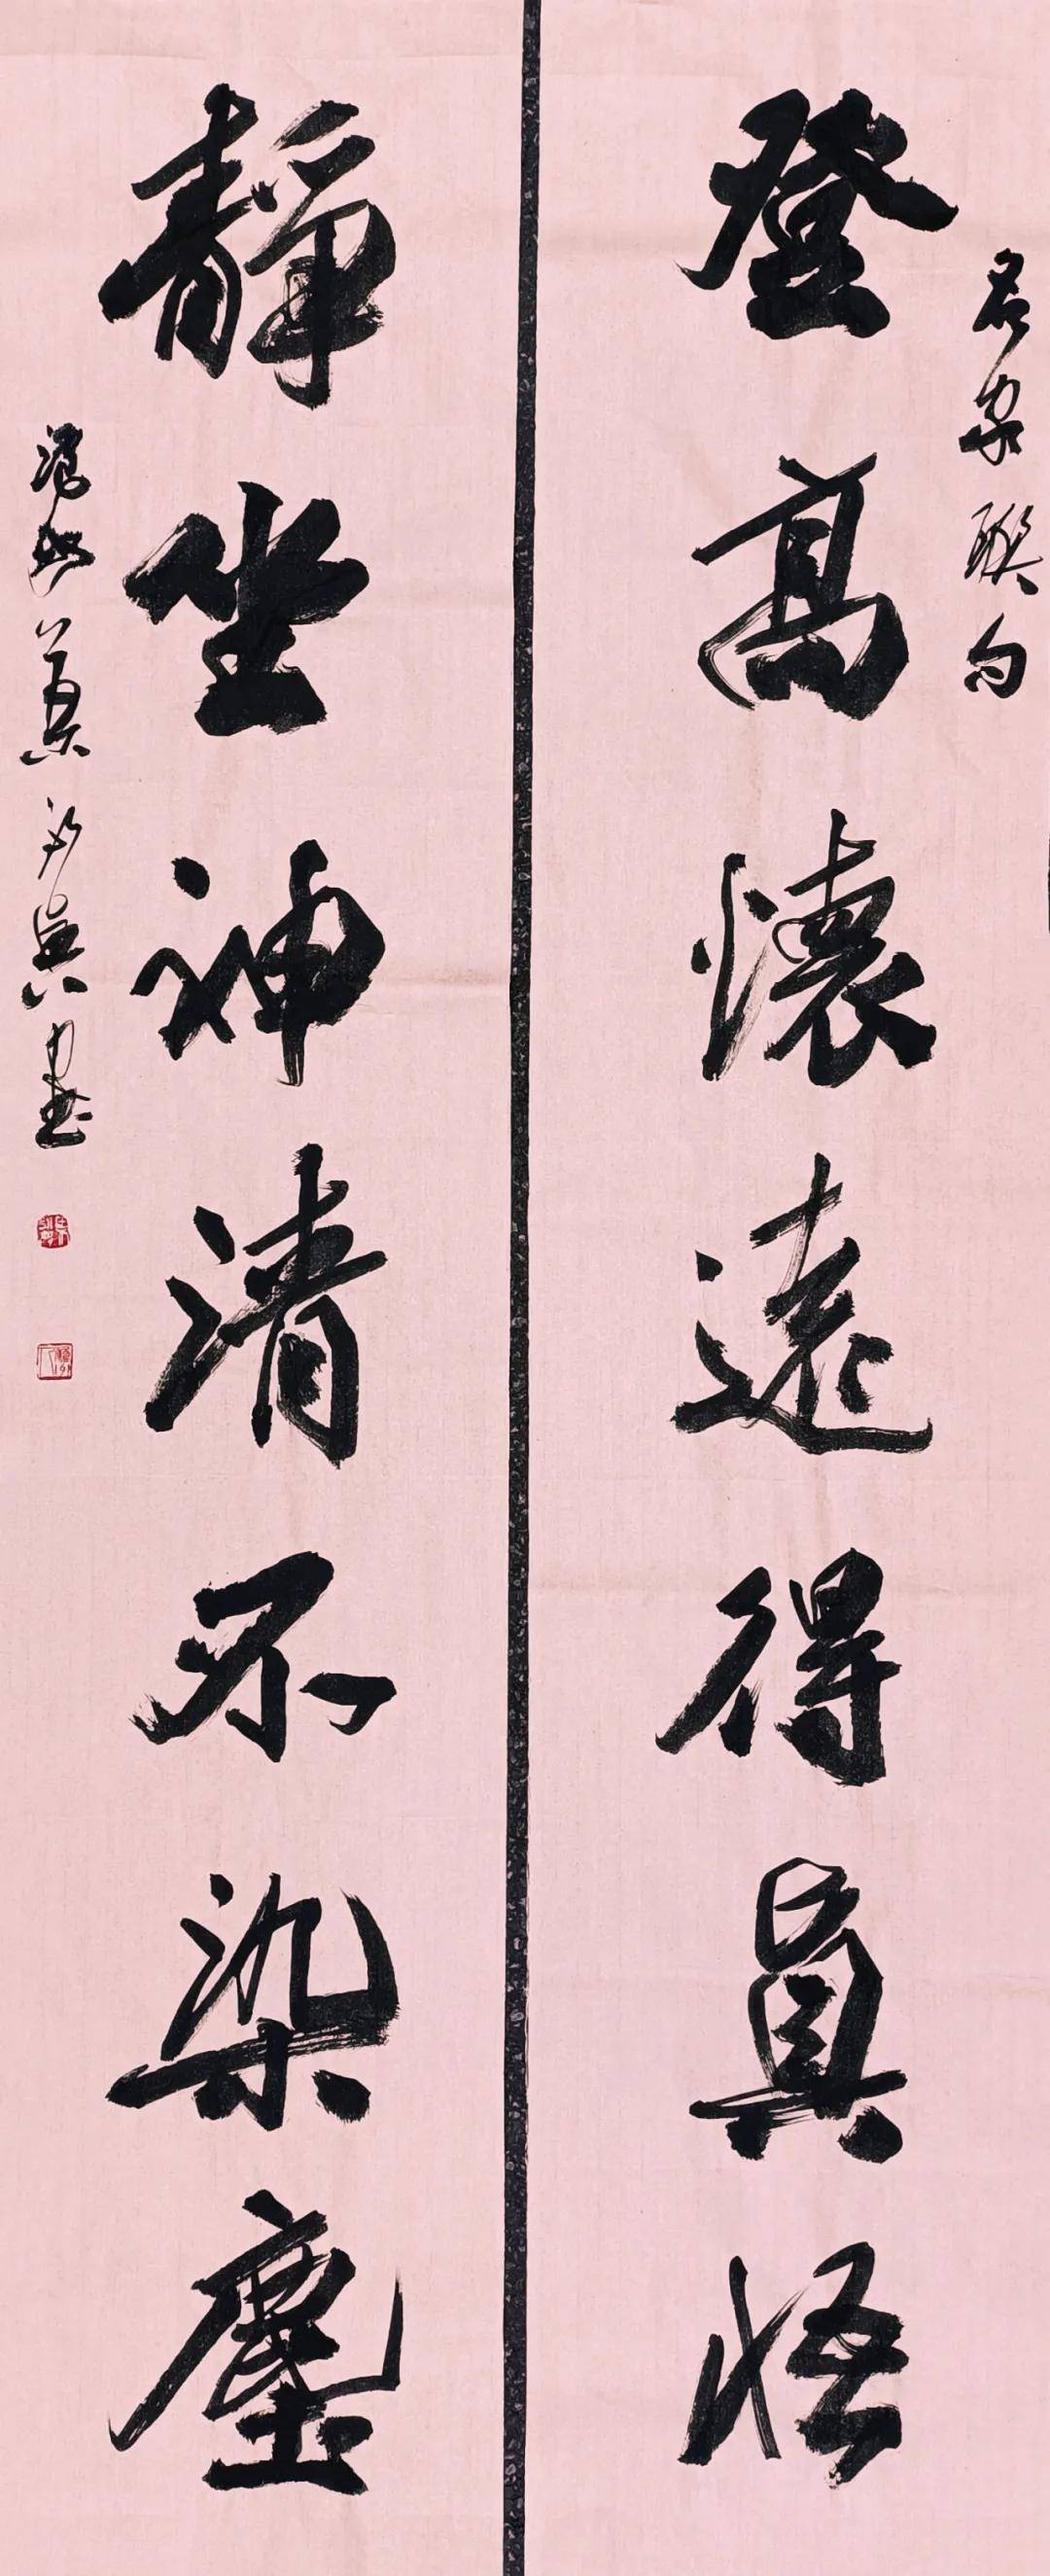 登高懷遠得真悟
名家聯句
靜坐神清不染塵